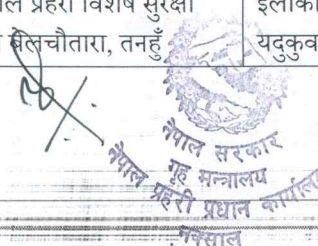 प्रहरी विशेष सुरक्षा
बेलचौतारा, तनहुँ
नेपाल सरकार
गृह मन्त्रालय
नेपाल प्रहरी प्रधान कार्यालय
नक्साल